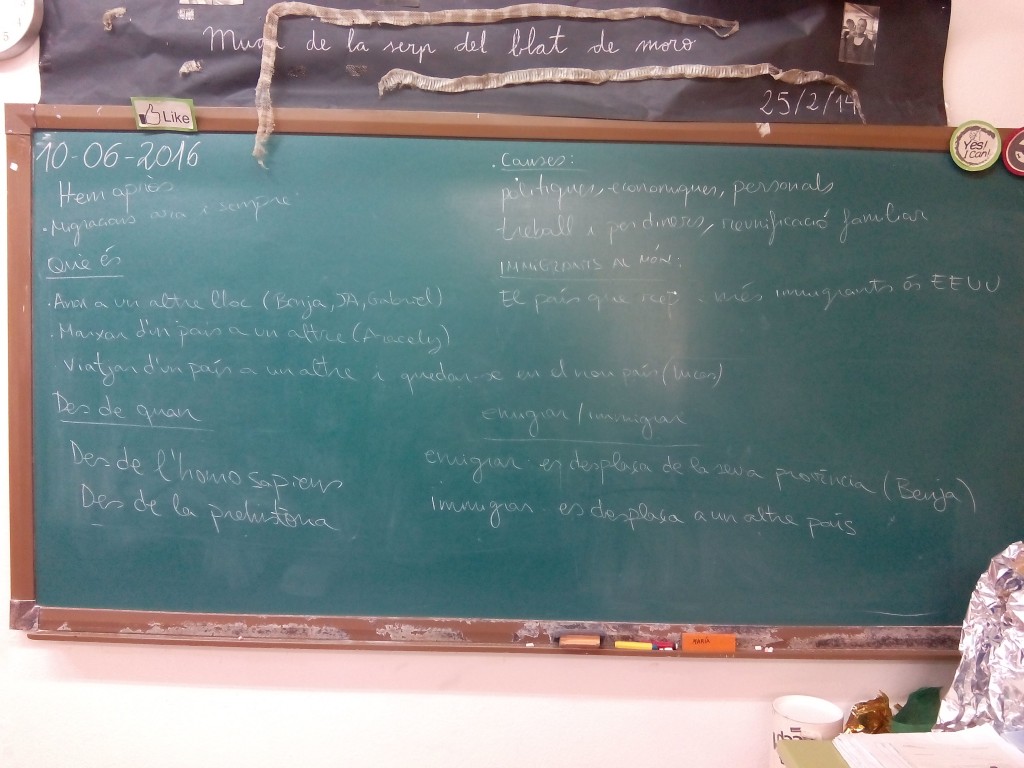 Muda de la serp del blat de moro
25/2/14
Like
Yes! I can!
10-06-2016
Hem après
· Migracions ara i sempre
Què és
· Anar a un altre lloc (Benja, JA, Gabriel)
· Marxar d'un país a un altre (Aracely)
· Viatjar d'un país a un altre i quedar-se en el nou país
Des de quan
Des de l'homo sapiens
Des de la prehistòria
· Causes:
polítiques, econòmiques, personals
treball i per diners, reunificació familiar
IMMIGRANTS AL MÓN:
El país que rep més immigrants és EEUU
emigrar / immigrar
emigrar - es desplaça de la seva província (Benja)
immigrar - es desplaça a un altre país